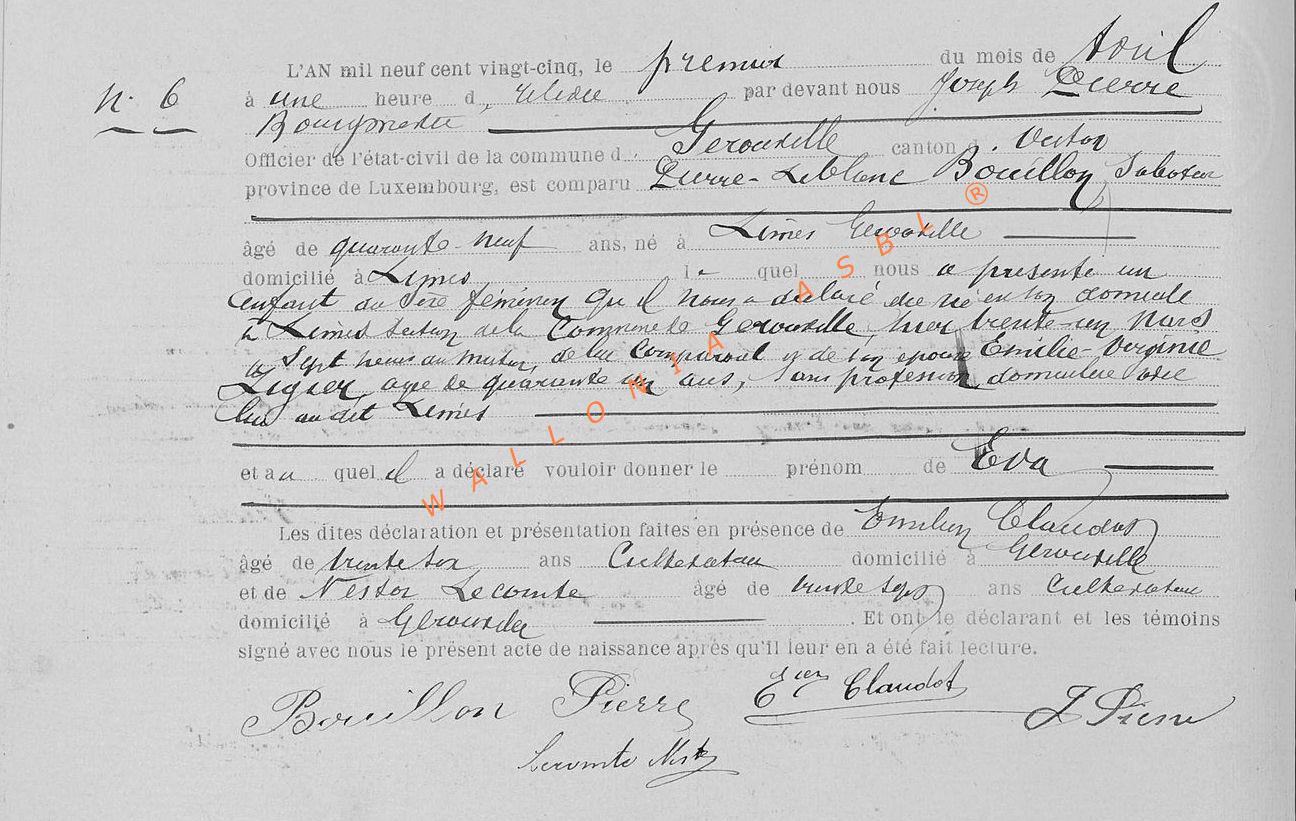 L'AN mil neuf cent vingt-cinq, le premier du mois de Avril
N. 6 à une heure d par devant nous Joseph Pierre
Bourgmestre
Officier de l'état-civil de la commune d. Gerouville canton d. Virton
province de Luxembourg, est comparu Pierre-Leblanc Bouillon, Sabotier
âgé de quarante-neuf ans, né à Limes Gerouville
domicilié à Limes l quel nous a présenté un
enfant du sexe féminin qu'il nous a déclaré être né en son domicile
à Limes section de la Commune de Gerouville, hier trente-un Mars
à sept heures du matin, de lui comparant et de son épouse Emilie-Virginie
Ligier, âgée de quarante un ans, sans profession domiciliée avec
lui au dit Limes
et au quel il a déclaré vouloir donner le prénom de Eva
Les dites déclaration et présentation faites en présence de Emilien Claudot
âgé de trente ans Cultivateur domicilié à Gerouville
et de Nestor Lecomte âgé de trente sept ans Cultivateur
domicilié à Gerouville . Et ont le déclarant et les témoins
signé avec nous le présent acte de naissance après qu'il leur en a été fait lecture.
Bouillon Pierre Claudot J Pierre
Lecomte Nestor
WALLONIA ASBL ®